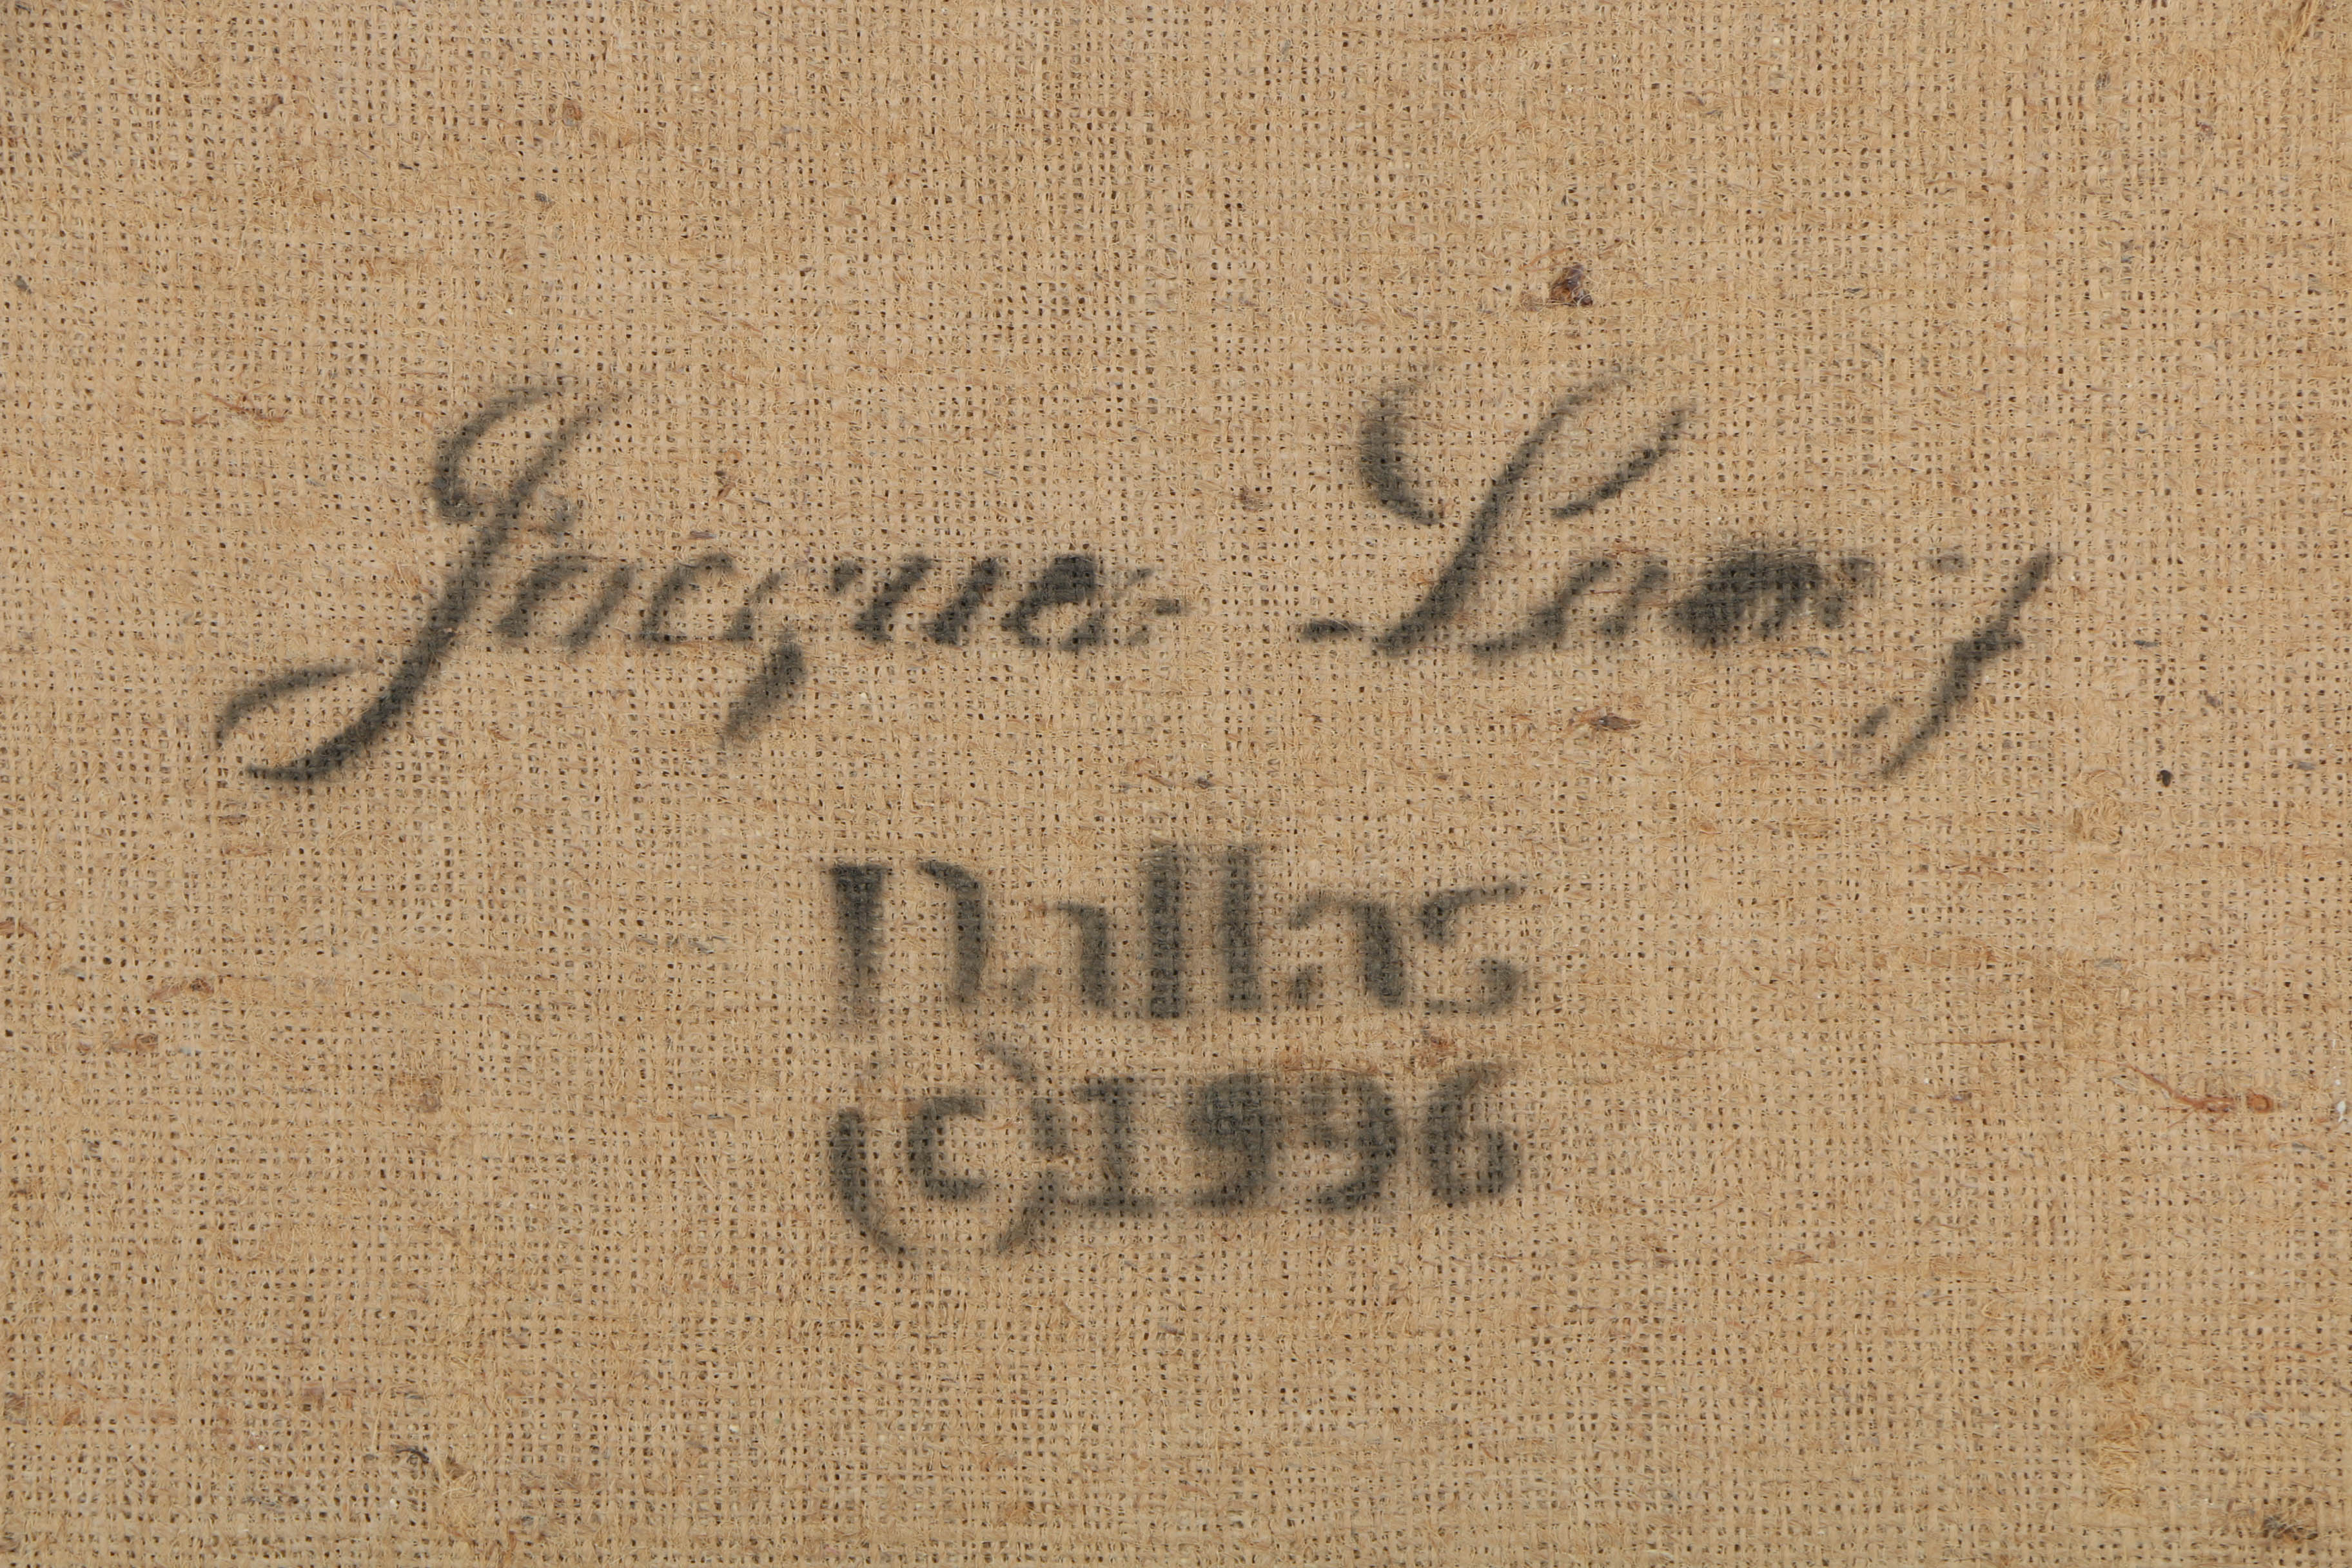 Jacques Lamy
Dallas
(C)1996